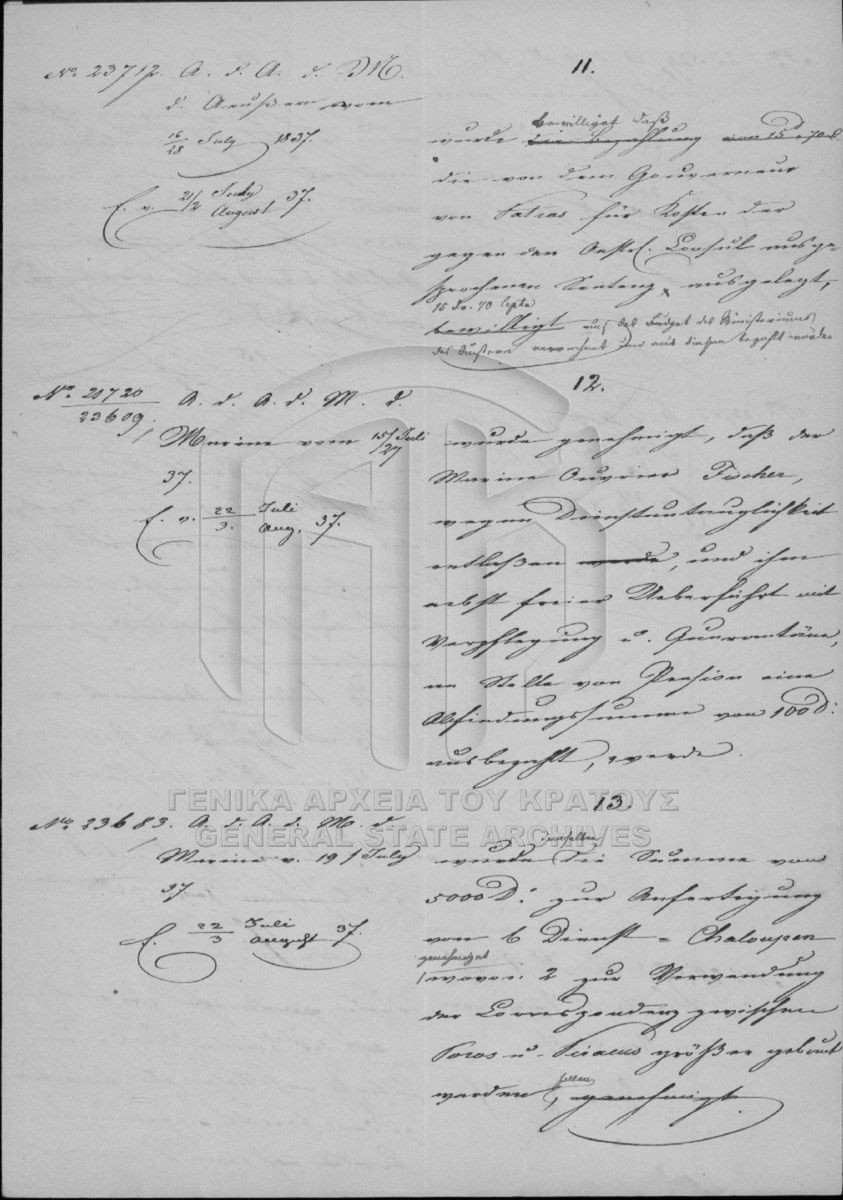 No 23712. A. d. A. d. M.
d. Aeußern vom
16/28 July 1837.
E. v. 21/2 July/August 37.
11.
bewilligt daß
wurde die Bezahlung von 15 D. 70 L.
die von dem Gouverneur
von Patras für Kosten der
gegen den Oestr. Consul ausge-
sprochenen Sentenz ausgelegt,
15 Dr. 70 Lepta
bewilligt auf das Budget des Ministeriums
des Äußern verrechnet und aus diesem bezahlt werden
No 21720
23609.
A. d. A. d. M. d.
Marine vom 15/27 Juli
37.
E. v. 22/3. Juli/Aug. 37.
12.
wurde genehmigt, daß der
Marine Ouvrier Fischer,
wegen Dienstuntauglichkeit
entlaßen werde, und ihm
nebst freier Ueberfahrt mit
Verpflegung u. Quarantäne,
an Stelle von Pension eine
Abfindungssumme von 100 D:
ausbezahlt, werde.
ΓΕΝΙΚΑ ΑΡΧΕΙΑ ΤΟΥ ΚΡΑΤΟΥΣ
GENERAL STATE ARCHIVES
No 23683. A. d. A. d. M. d.
Marine v. 19/ July
37.
E. 22/3 Juli/August 37.
13.
demselben
wurde die Summe von
5000 D: zur Anfertigung
von 6 Dienst-Chaloupen
genehmigt
wovon 2 zur Verwendung
der Correspondenz zwischen
Poros u. Piraeus größer gebaut
werden sollen, genehmigt.